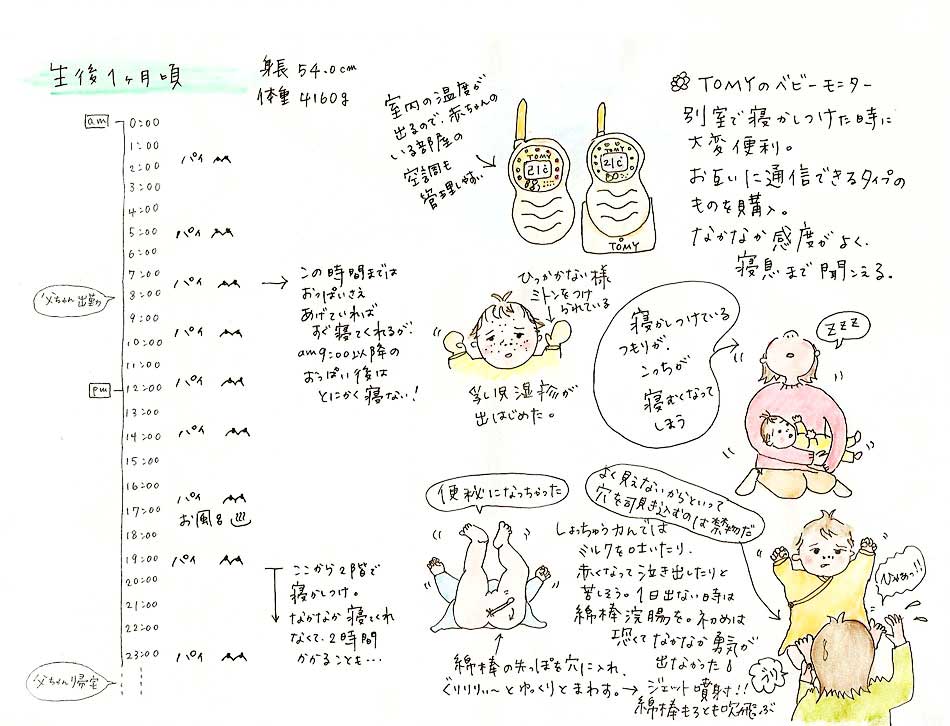 生後1ヶ月頃
身長 54.0cm
体重 4160g
am
0:00
1:00
2:00 パイ
3:00
4:00
5:00 パイ
6:00
7:00 パイ
父ちゃん出勤
8:00
9:00
10:00 パイ
11:00
pm
12:00 パイ
13:00
14:00 パイ
15:00
16:00
パイ
17:00 お風呂
18:00
19:00 パイ
20:00
21:00
22:00
23:00 パイ
父ちゃん帰宅
この時間までは
おっぱいさえ
あげていれば
すぐ寝てくれるが、
am9:00以降の
おっぱい後は
とにかく寝ない!
ここから2階で
寝かしつけ。
なかなか寝てくれ
なくて、2時間
かかることも…
室内の温度が
出るので、赤ちゃんの
いる部屋の
空調も
管理しやすい
TOMY
21℃
TOMY
21℃
TOMY
TOMYのベビーモニター
別室で寝かしつけた時に
大変便利。
お互いに通信できるタイプの
ものを購入。
なかなか感度がよく、
寝息まで聞こえる。
ひっかかない様
ミトンをつけ
られている
乳児湿疹が
出はじめた。
寝かしつけている
つもりが、
こっちが
寝むくなって
しまう
ZZZ
便秘になっちゃった
よく見えないからといって
穴を覗き込むのは禁物だ
しょっちゅう力んでは
ミルクを吐いたり、
赤くなって泣き出したりと
苦しそう。1日出ない時は
綿棒浣腸を。初めは
恐くてなかなか勇気が
出なかった
綿棒の先っぽを穴に入れ、
ぐりりりぃ〜とゆっくりとまわす。→ジェット噴射!!
綿棒もろとも吹飛ぶ
ひゃあっ!!
ブリッ